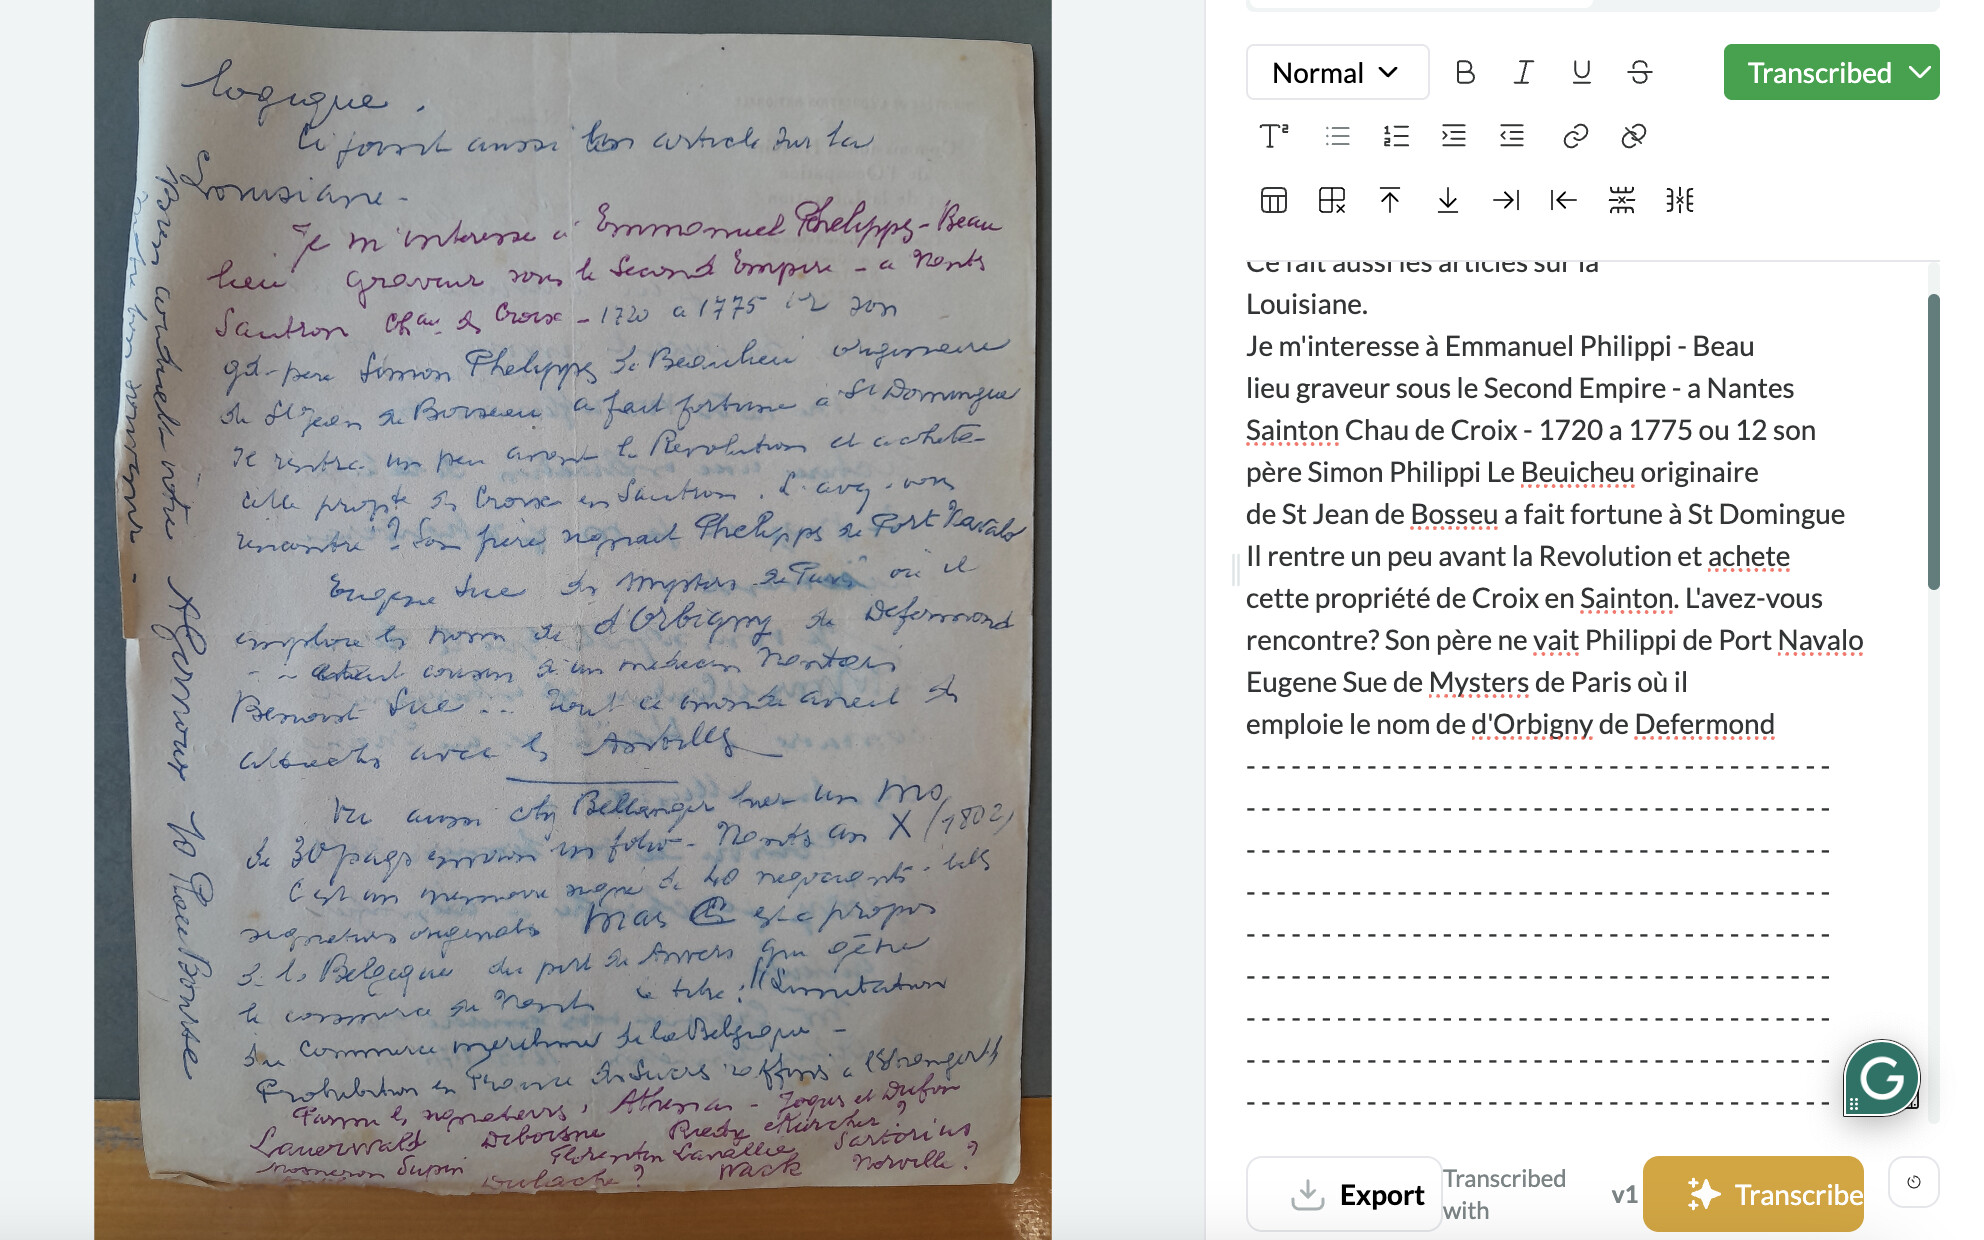 logique.
Ci joint aussi un article sur la
Louisiane -
Je m'interesse a Emmanuel Phelipps - Beau
lieu graveur sous le Second Empire - a Nants
Sautron Chau de Croix - 1720 a 1775 son
gd-pere Simon Phelipps de Beaulieu originaire
de St Jean de Boiseau a fait fortune a St Domingue
Il rentre un peu avant la Revolution et achete
cette propte de Croix en Sautron. L'avez-vous
rencontré? Son frere signait Phelipps de Port Navalo
Eugene Sue des Mysters de Paris où il
emploie les noms de d'Orbigny de Defermond
-- etait cousin d'un médecin Nantais
Benoist Sue ... Tout ce monde avait des
attaches avec les Antilles
Vu aussi chz Bellanger hier un Mo
de 30 pages environ in folio - Nants an X (1802)
C'est un memoire signé de 40 negociants. les
signatures originals Mais est a propos
de la Belgique du port de Anvers qui gêne
le commerce de Nants le titre : "Limitation
du Commerce maritime de la Belgique -
Prohibition en France des Sucres raffinés a l'étranger"
Parmi les signatures, Athenas - Joques et Dufou
Lauerwald Deboisne Kircher ?
Florentin Lavallée Sartorius
Mosneron Dupin Dulache ? Wack Norville ?
Bien cordiall notre
A Germoux 10 Place Bourse
Normal
B
I
U
S
Transcribed
Ce fait aussi les articles sur la
Louisiane.
Je m'interesse à Emmanuel Philippi - Beau
lieu graveur sous le Second Empire - a Nantes
Sainton Chau de Croix - 1720 a 1775 ou 12 son
père Simon Philippi Le Beuicheu originaire
de St Jean de Bosseu a fait fortune à St Domingue
Il rentre un peu avant la Revolution et achete
cette propriété de Croix en Sainton. L'avez-vous
rencontre? Son père ne vait Philippi de Port Navalo
Eugene Sue de Mysters de Paris où il
emploie le nom de d'Orbigny de Defermond
Export
Transcribed
with
v1
Transcribe